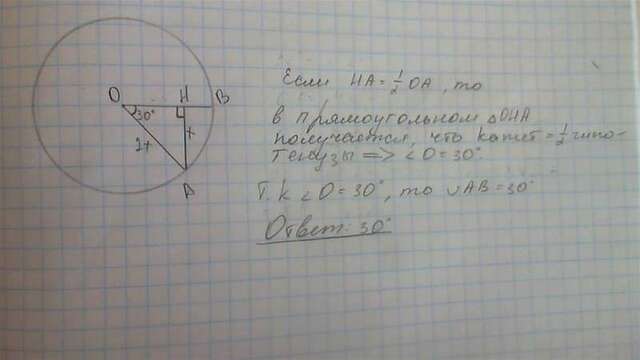 O
H
B
30°
x
2x
A
Если HA = 1/2 OA, то
в прямоугольном △OHA
получается, что катет = 1/2 гипо-
тенузы => ∠O = 30°.
Т.к ∠O = 30°, то ∪AB = 30°
Ответ: 30°